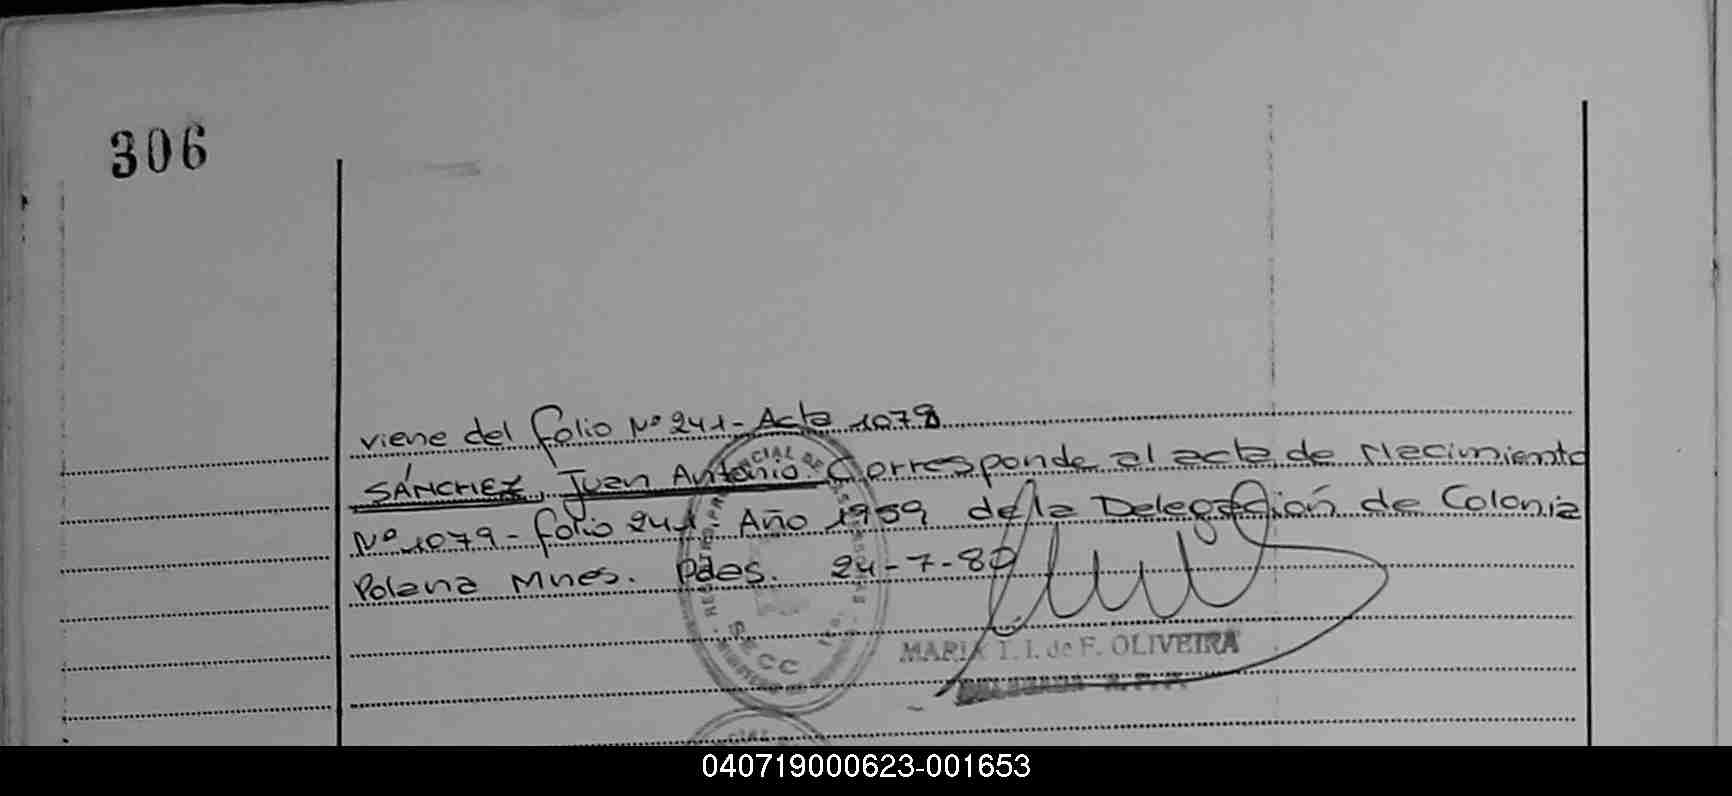 306
viene del folio Nº 241 - Acta 1079
SÁNCHEZ, Juan Antonio. Corresponde al acta de Nacimiento
Nº 1079 - folio 241. Año 1959 de la Delegación de Colonia
Polana Mnes. Pdas. 24-7-80
SECC
MARIA I. I. de F. OLIVEIRA
DELEGADA
040719000623-001653